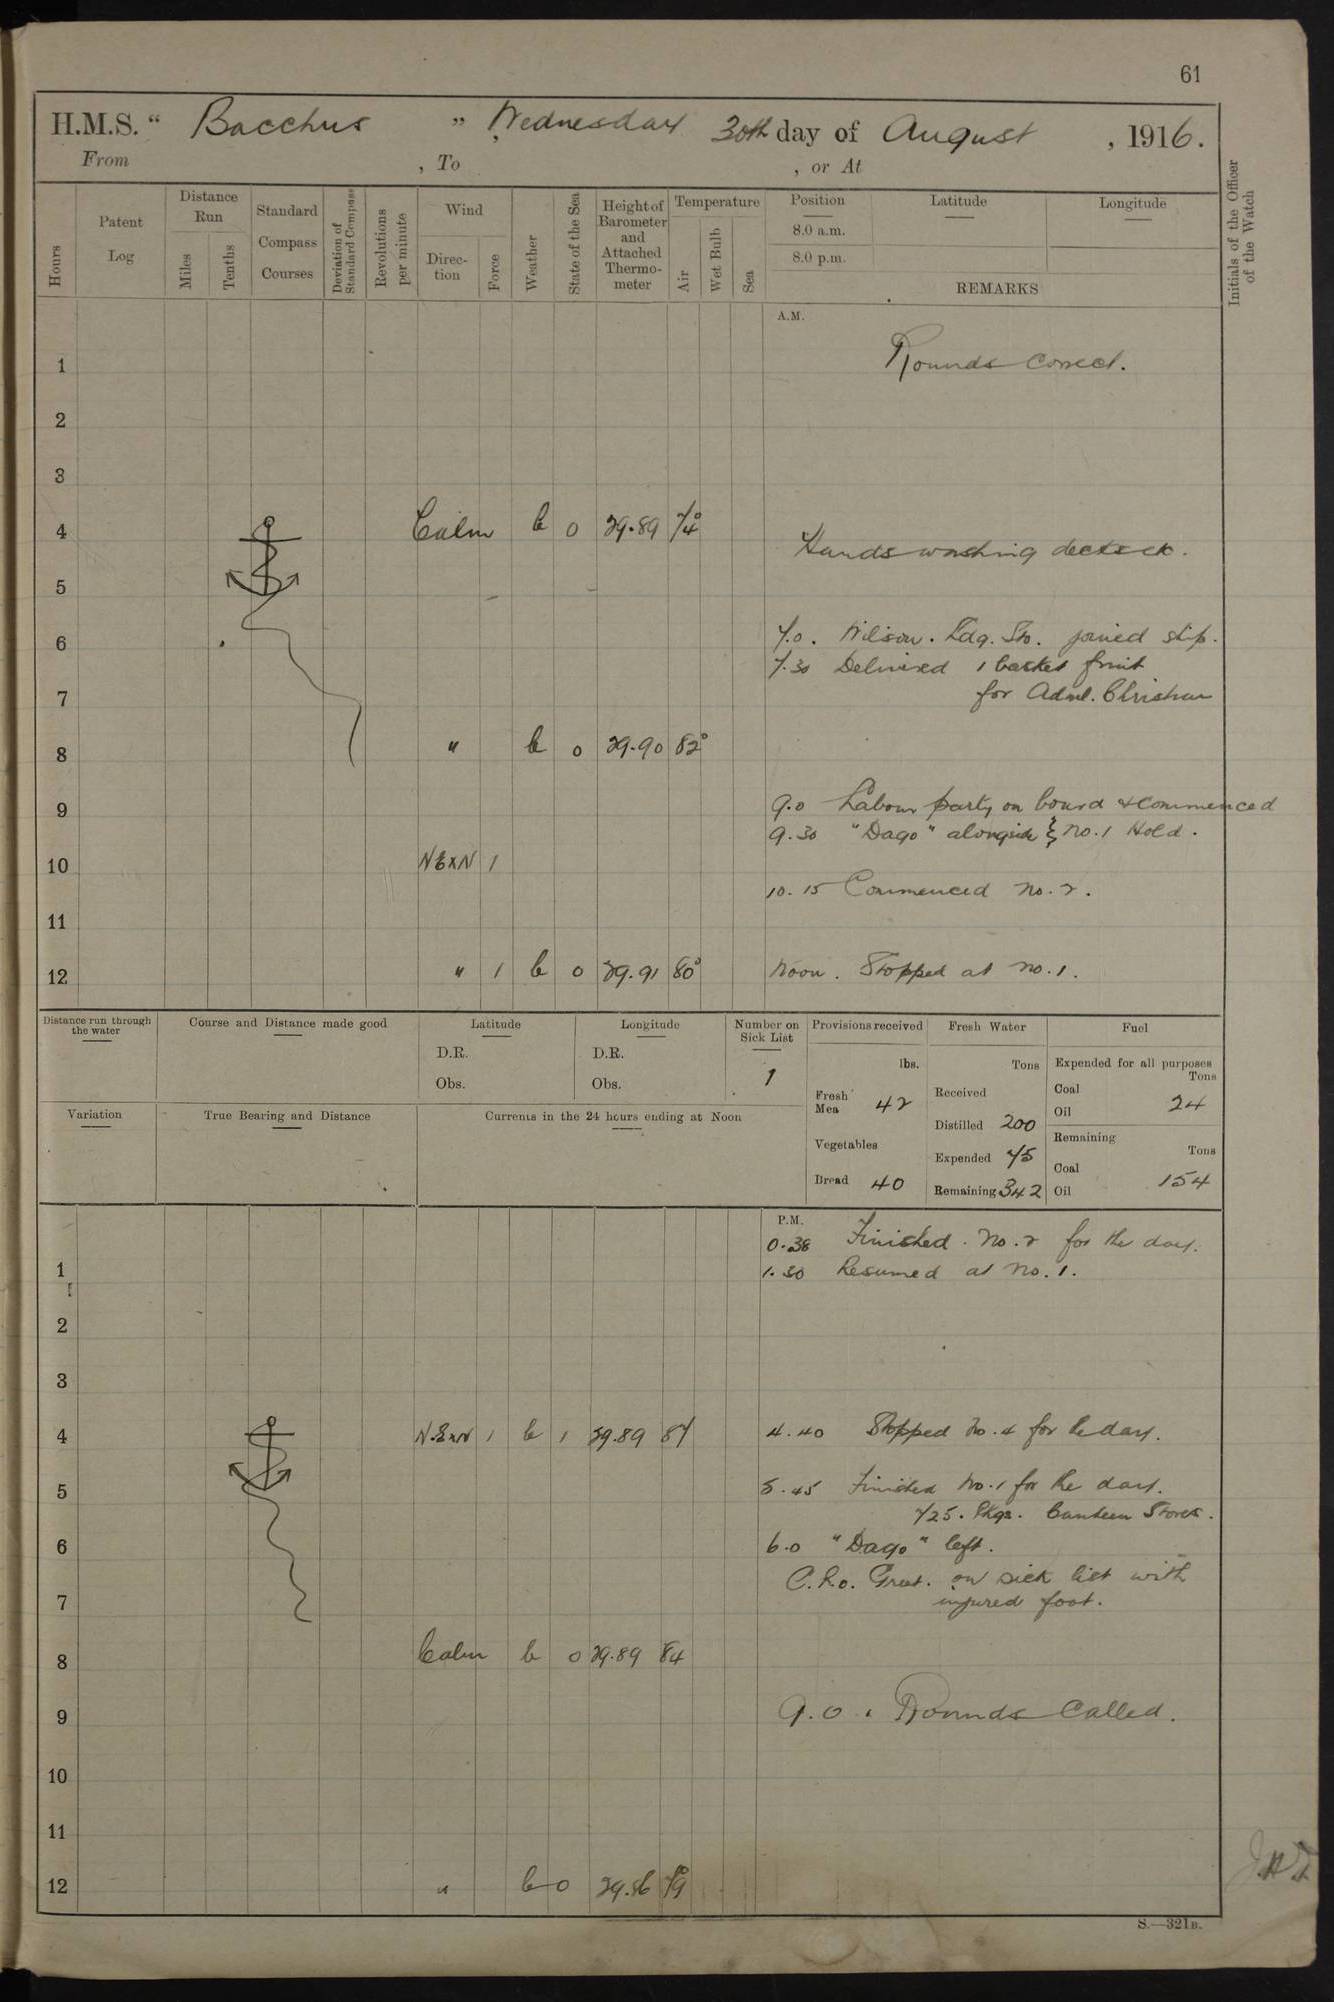 61
H.M.S. " Bacchus " Wednesday 30th day of August , 1916.
From , To , or At
Hours
Patent Log
Distance Run
Miles
Tenths
Standard Compass Courses
Deviation of Standard Compass
Revolutions per minute
Wind
Direction
Force
Weather
State of the Sea
Height of Barometer and Attached Thermometer
Temperature
Air
Wet Bulb
Sea
Position
8.0 a.m.
8.0 p.m.
Latitude
Longitude
REMARKS
Initials of the Officer of the Watch
A.M.
1 Rounds correct.
2
3
4 Calm b 0 29.89 74°
Hands washing decks &c.
5
6 7.0. Wilson. Ldg. Sto. joined ship.
7.30 Delivered 1 basket fruit
7 for Adml. Christian
8 " b 0 29.90 82°
9 9.0 Labour party on board & commenced
9.30 "Dago" alongside } No. 1 Hold.
10 NExN 1
10.15 Commenced No. 2.
11
12 " 1 b 0 29.91 80° Noon. Stopped at No. 1.
Distance run through the water
Course and Distance made good
Latitude
D.R.
Obs.
Longitude
D.R.
Obs.
Number on Sick List
1
Provisions received
lbs.
Fresh Mea 42
Vegetables
Bread 40
Fresh Water
Tons
Received
Distilled 200
Expended 75
Remaining 342
Fuel
Expended for all purposes
Tons
Coal
Oil 24
Remaining
Tons
Coal
Oil 154
Variation
True Bearing and Distance
Currents in the 24 hours ending at Noon
P.M.
0.38 Finished No. 2 for the day.
1 1.30 Resumed at No. 1.
2
3
4 N.ExN 1 b 1 29.89 87 4.40 Stopped No. 4 for the day.
5 5.45 Finished No. 1 for the day.
725. Pkgs. Canteen Stores.
6 6.0 "Dago" left.
C.P.O. on sick list with
7 injured foot.
8 Calm b 0 29.89 84
9 9.0. Rounds Called.
10
11
12 " b 0 29.86 79°
S.—321B.